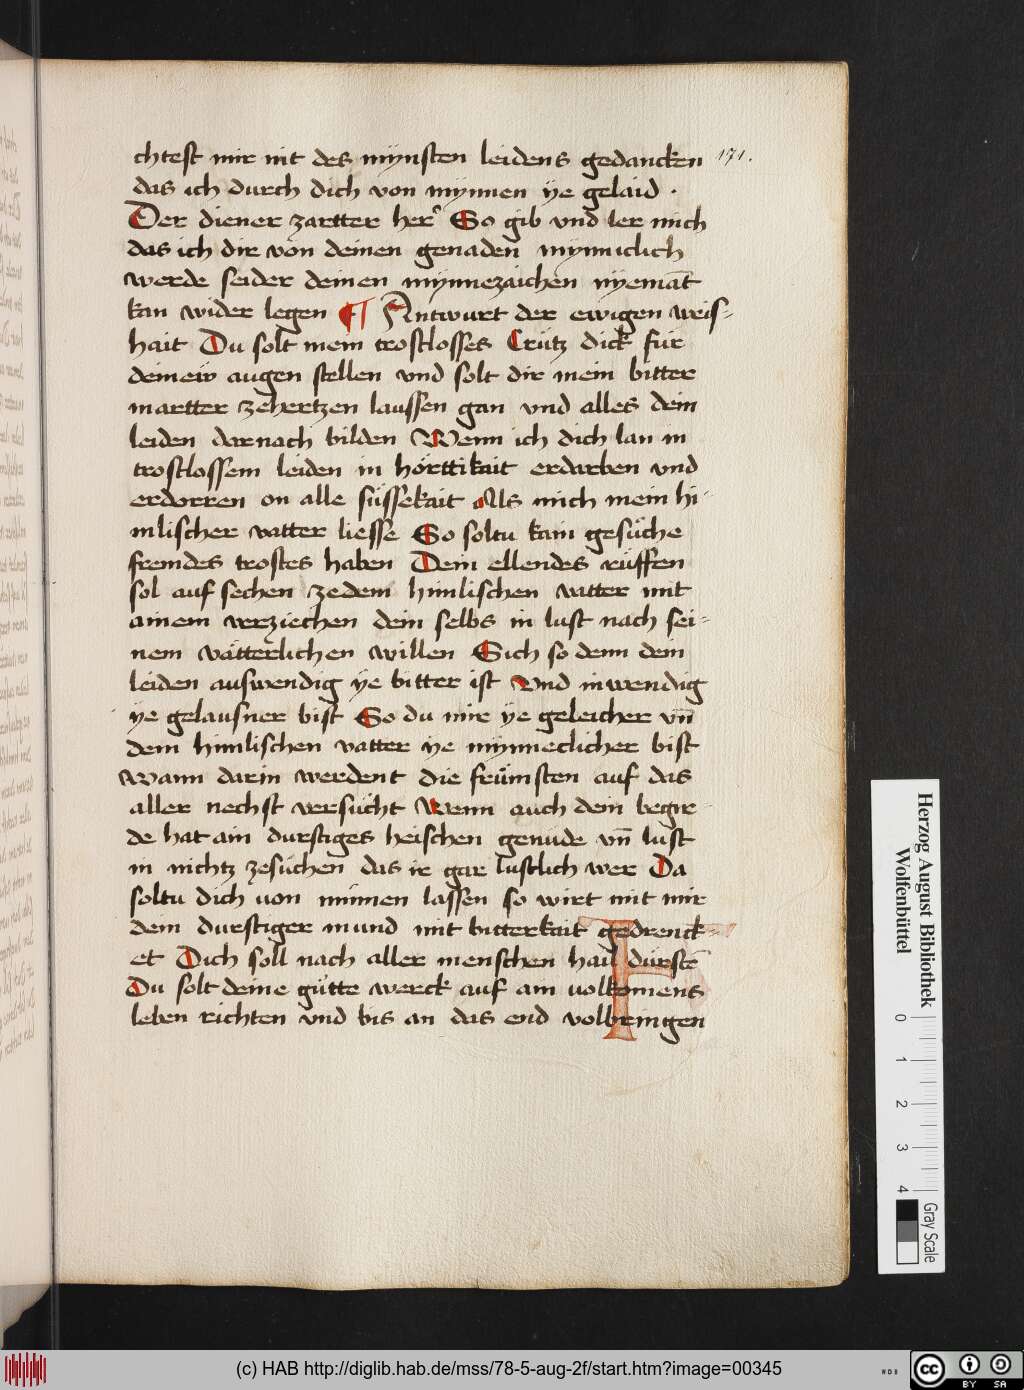 chtest mir nit des mynsten leidens gedancken 171.
das ich durch dich von mynnen ye gelaid .
Der diener zartter her So gib vnd ler mich
das ich dir von deinen genaden mynnclich
werde seider deinen mynnezaichen nyemāt
kan wider legen ¶ Antwurt der ewigen weis-
hait Du solt mein trostlosses Crütz dick für
deinew augen stellen vnd solt dir mein bitter
martter zehertzen laussen gan vnd alles dein
leiden darnach bilden Wenn ich dich lan in
trostlossem leiden in hörttikait erdarben vnd
erdorren on alle süssekait Als mich mein hi-
mlischer vatter liesse So soltu kain gesüche
fremdes trostes haben Dein ellendes rüffen
sol auf sechen zedem himlischen vatter mit
ainem verziechen dein selbs in lust nach sei-
nem vätterlichen willen Sich so denn dein
leiden auswendig ye bitter ist Vnd inwendig
ye gelausner bist So du mir ye geleicher vn̄
dem himlischen vatter ye mynneclicher bist
Wann darin werdent die frümsten auf das
aller nechst versücht Wenn auch dein begir-
de hat ain durstiges heischen genüde vn̄ lust
in nichtz zesüchen das ir gar lustlich wer Da
soltu dich von minen lassen so wirt mit mir
dein durstiger mund mit bitterkait gedrenck-
et Dich soll nach aller menschen hail dürstē
Du solt deine gütte werck auf ain volkomens
leben richten vnd bis an das end volbringen
Herzog August Bibliothek
Wolfenbüttel
0 1 2 3 4
Gray Scale
(c) HAB http://diglib.hab.de/mss/78-5-aug-2f/start.htm?image=00345
WDB
CC BY SA